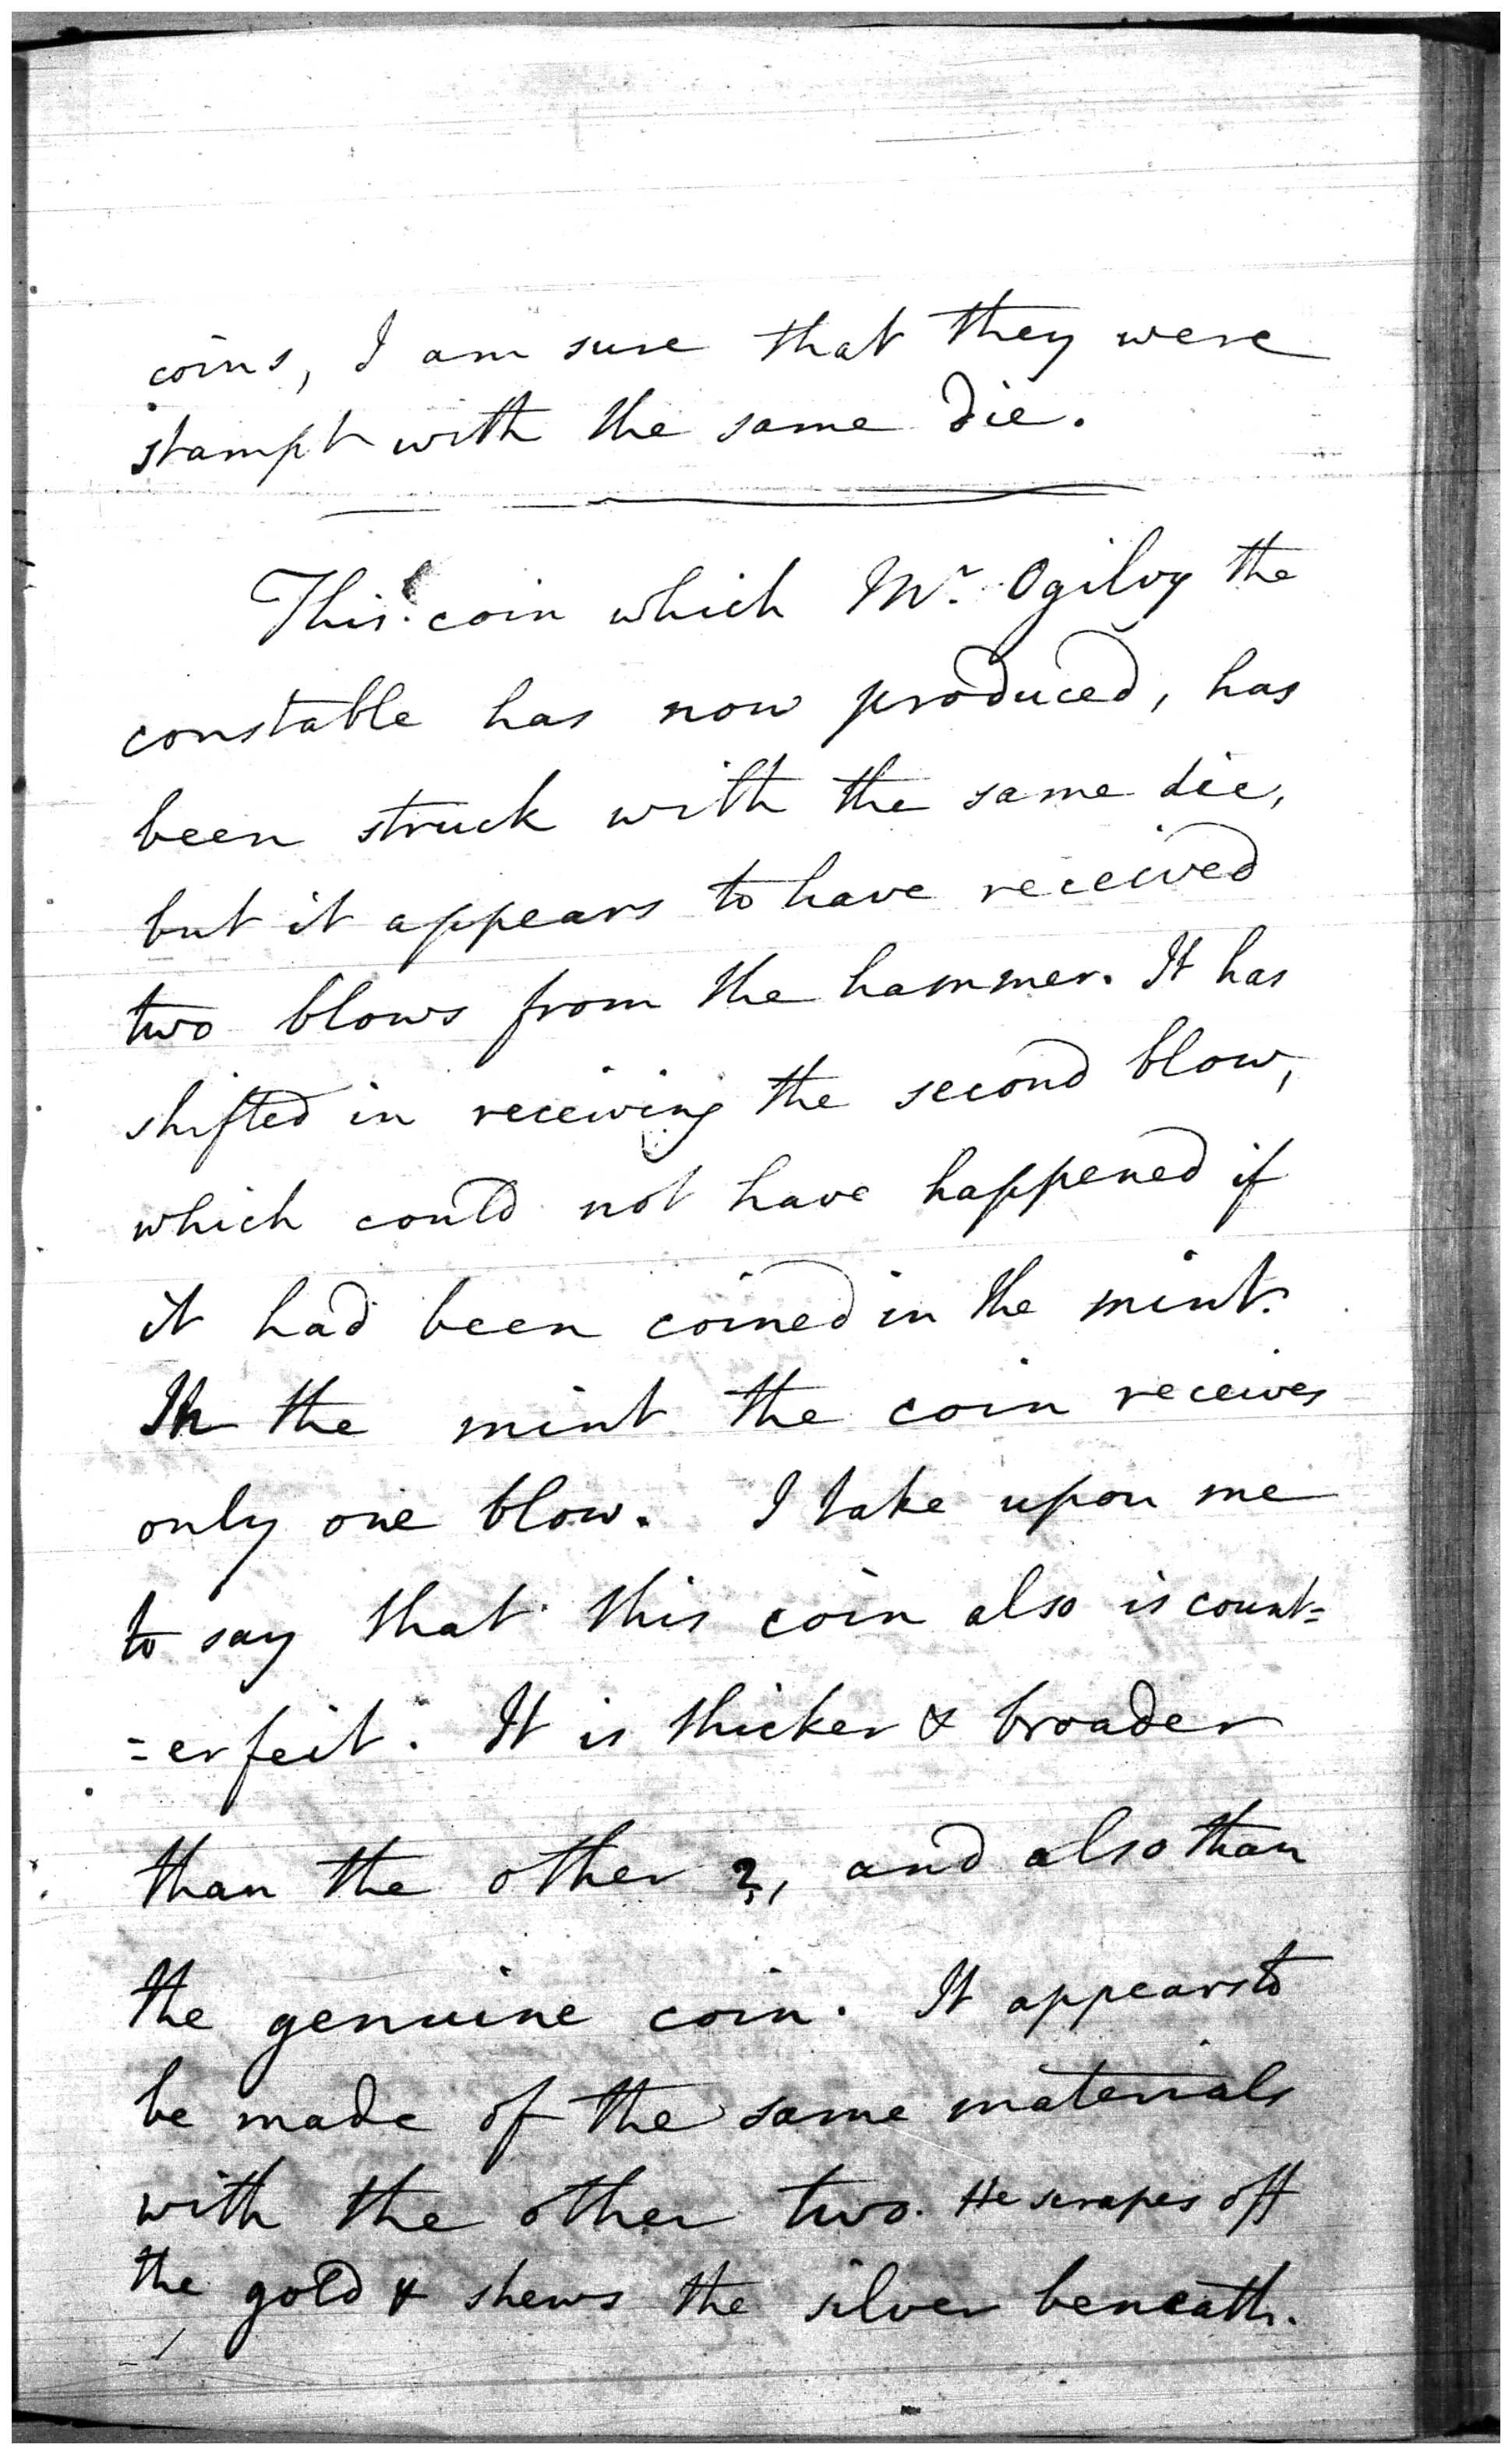 coins, I am sure that they were
stampt with the same die.
This coin which Mr. Ogilvy the
constable has now produced, has
been struck with the same die,
but it appears to have received
two blows from the hammer. It has
shifted in receiving the second blow,
which could not have happened if
it had been coined in the mint.
In the mint the coin receives
only one blow. I take upon me
to say that this coin also is count=
=erfeit. It is thicker & broader
than the other 2, and also than
the genuine coin. It appears to
be made of the same materials
with the other two. He scrapes off
the gold & shews the silver beneath.